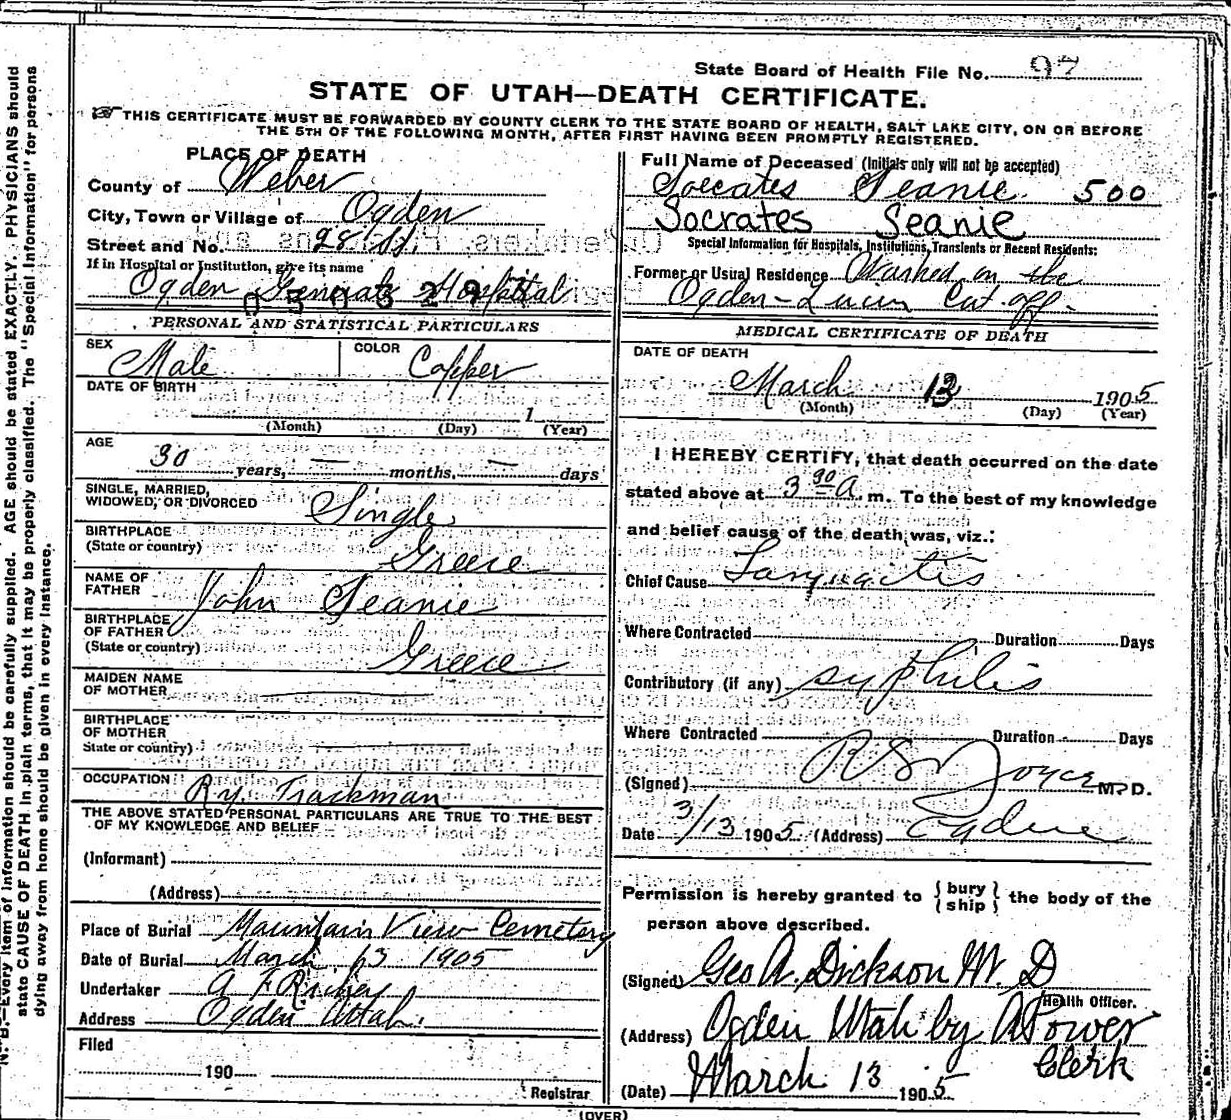 State Board of Health File No. 97
STATE OF UTAH—DEATH CERTIFICATE.
☞ THIS CERTIFICATE MUST BE FORWARDED BY COUNTY CLERK TO THE STATE BOARD OF HEALTH, SALT LAKE CITY, ON OR BEFORE
THE 5TH OF THE FOLLOWING MONTH, AFTER FIRST HAVING BEEN PROMPTLY REGISTERED.
PLACE OF DEATH
County of Weber
City, Town or Village of Ogden
Street and No. 28 St.
If in Hospital or Institution, give its name
Ogden General Hospital
PERSONAL AND STATISTICAL PARTICULARS
SEX Male COLOR Copper
DATE OF BIRTH
1
(Month) (Day) (Year)
AGE
30 years, — months, — days
SINGLE, MARRIED,
WIDOWED, OR DIVORCED Single
BIRTHPLACE
(State or country) Greece
NAME OF
FATHER John Seanie
BIRTHPLACE
OF FATHER
(State or country) Greece
MAIDEN NAME
OF MOTHER
BIRTHPLACE
OF MOTHER
State or country)
OCCUPATION Ry. Trackman
THE ABOVE STATED PERSONAL PARTICULARS ARE TRUE TO THE BEST
OF MY KNOWLEDGE AND BELIEF
(Informant)
(Address)
Place of Burial Mountain View Cemetery
Date of Burial March 13 1905
Undertaker A F Richey
Address Ogden Utah.
Filed
190
Registrar
Full Name of Deceased (Initials only will not be accepted)
Socrates Seanie 500
Socrates Seanie
Special Information for Hospitals, Institutions, Transients or Recent Residents:
Former or Usual Residence Worked on the
Ogden-Lucin Cut off.
MEDICAL CERTIFICATE OF DEATH
DATE OF DEATH
March 13 1905
(Month) (Day) (Year)
I HEREBY CERTIFY, that death occurred on the date
stated above at 3 A. m. To the best of my knowledge
and belief cause of the death was, viz.:
Chief Cause
Where Contracted Duration Days
Contributory (if any) syphilis
Where Contracted Duration Days
(Signed) R S Joyce M. D.
Date 3/13 1905 (Address) Ogden
Permission is hereby granted to { bury ship } the body of the
person above described.
(Signed) Geo A. Dickson M. D
Health Officer.
(Address) Ogden Utah by A Power
Clerk
(Date) March 13 1905
(OVER)
N. B.—Every item of information should be carefully supplied. AGE should be stated EXACTLY. PHYSICIANS should
state CAUSE OF DEATH in plain terms, that it may be properly classified. The "Special Information" for persons
dying away from home should be given in every instance.